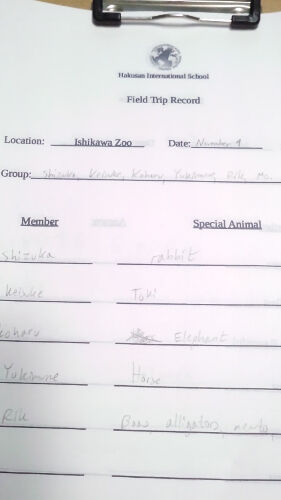 Hakusan International School
Field Trip Record
Location: Ishikawa Zoo Date: November 9
Group: Shizuka, Keisuke, Koharu, Yukimune, Rik, Mo.
Member Special Animal
Shizuka rabbit
Keisuke Toki
koharu Elephant
Yukimune Horse
Rik alligators,